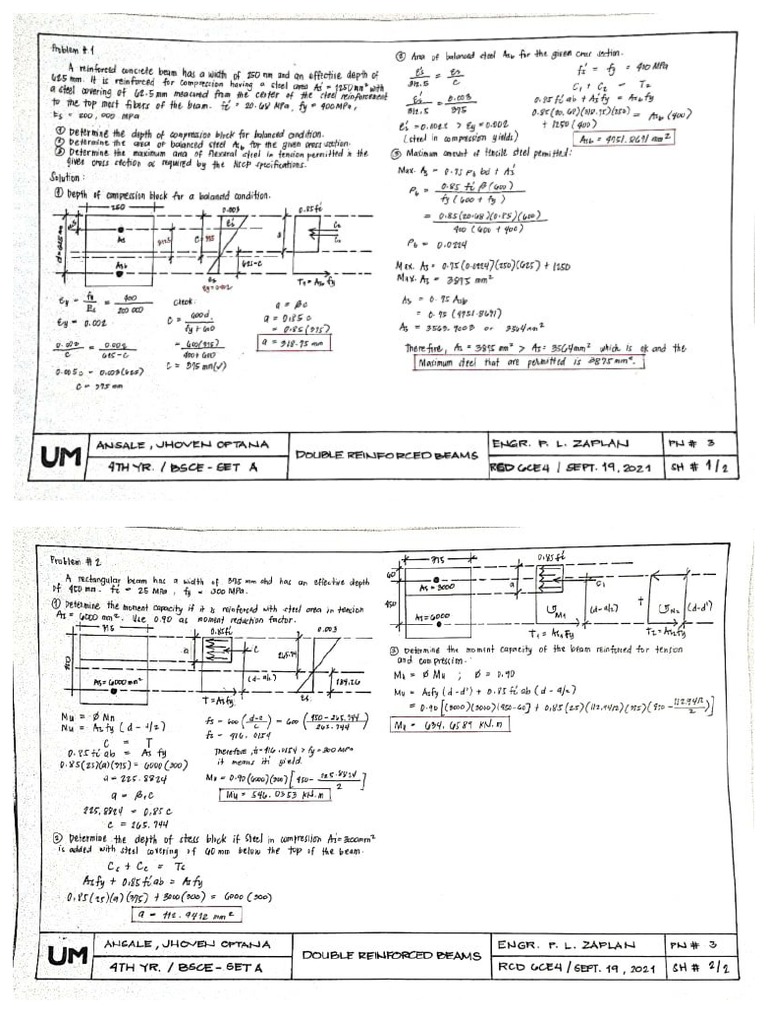 Problem # 1
A reinforced concrete beam has a width of 250 mm and an effective depth of
625 mm. It is reinforced for compression having a steel area As' = 1250 mm² with
a steel covering of 62.5 mm measured from the center of the steel reinforcement
to the top most fibers of the beam. fc' = 20.68 MPa, fy = 400 MPa,
Es = 200,000 MPa
① Determine the depth of compression block for balanced condition.
② Determine the area of balanced steel Asb for the given cross section.
③ Determine the maximum area of flexural steel in tension permitted in the
given cross section as required by the NSCP specifications.
Solution:
① Depth of compression block for a balanced condition.
250
0.003
0.85 fc'
As
Asb
d = 625 mm
312.5
C = 375
625-C
a
T = Asb fy
εy = 0.002
εy = fy / Es = 400 / 200 000
εy = 0.002
0.003 / c = 0.002 / 625 - c
0.005c = 0.003 (625)
c = 375 mm
Check:
C = 600d / fy + 600
= 600 (625) / 400 + 600
C = 375 mm (√)
a = βc
a = 0.85 c
= 0.85 (375)
a = 318.75 mm
② Area of balanced steel Asb for the given cross section.
εs' / 312.5 = εs / c
εs' / 312.5 = 0.003 / 375
εs' = 0.0025 > εy = 0.002
(steel in compression yields)
fs' = fy = 400 MPa
C1 + C2 = T2
0.85 fc' ab + As' fy = Asb fy
0.85 (20.68) (318.75) (250) = Asb (400)
+ 1250 (400)
Asb = 4751.8691 mm²
③ Maximum amount of tensile steel permitted:
Max. As = 0.75 ρb bd + As'
ρb = 0.85 fc' β (600) / fy (600 + fy)
= 0.85 (20.68) (0.85) (600) / 400 (600 + 400)
ρb = 0.0224
Max. As = 0.75 (0.0224) (250) (625) + 1250
Max. As = 3875 mm²
As = 0.75 Asb
= 0.75 (4751.8691)
As = 3563.9003 or 3564 mm²
Therefore, As = 3875 mm² > As = 3564 mm² which is ok and the
Maximum steel that are permitted is 3875 mm².
UM
ANSALE, JHOVEN OPTANA
4TH YR. / BSCE - SET A
DOUBLE REINFORCED BEAMS
ENGR. P. L. ZAPLAN
RCD 6CE4 / SEPT. 19, 2021
PN # 3
SH # 1/2
Problem # 2
A rectangular beam has a width of 375 mm and has an effective depth
of 450 mm. fc' = 25 MPa, fy = 300 MPa.
① Determine the moment capacity if it is reinforced with steel area in tension
As = 6000 mm². Use 0.90 as moment reduction factor.
375
0.85 fc'
0.003
450
As = 6000 mm²
a
C
(d - a/2)
T = As fy
265.74
184.26
εs
Mu = Ø Mn
Mu = As fy (d - a/2)
C = T
0.85 fc' ab = As fy
0.85 (25) (a) (375) = 6000 (300)
a = 225.8824
a = β1 c
225.8824 = 0.85 c
c = 265.744
fs = 600 (d-c / c) = 600 (450 - 265.744 / 265.744)
fs = 416.0154
Therefore, fs = 416.0154 > fy = 300 MPa
it means it's yield.
Mu = 0.90 (6000) (300) [450 - 225.8824 / 2]
Mu = 546.0353 kN.m
② Determine the depth of stress block if steel in compression As' = 3000 mm²
is added with steel covering of 60 mm below the top of the beam.
Cs + Cc = Ts
As fy + 0.85 fc' ab = As fy
0.85 (25) (a) (375) + 3000 (300) = 6000 (300)
a = 112.9412 mm²
375
0.85 fc'
60
450
As = 3000
As = 6000
a
C1
M1
(d - a/2)
T1 = As1 fy
T
M2
(d - d')
T2 = As2 fy
③ Determine the moment capacity of the beam reinforced for tension
and compression.
Mu = Ø Mu ; Ø = 0.90
Mu = As fy (d - d') + 0.85 fc' ab (d - a/2)
= 0.90 [(3000) (300) (450 - 60) + 0.85 (25) (112.9412) (375) (450 - 112.9412 / 2)]
Mu = 634.6589 kN.m
UM
ANSALE, JHOVEN OPTANA
4TH YR. / BSCE - SET A
DOUBLE REINFORCED BEAMS
ENGR. P. L. ZAPLAN
RCD 6CE4 / SEPT. 19, 2021
PN # 3
SH # 2/2